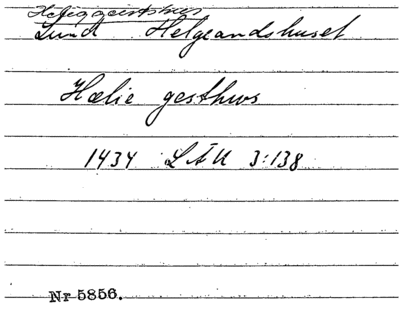 Helig geisthws
Lund Helgeandshuset
Hælie gesthws
1434 LÄU 3:138
Nr 5856.